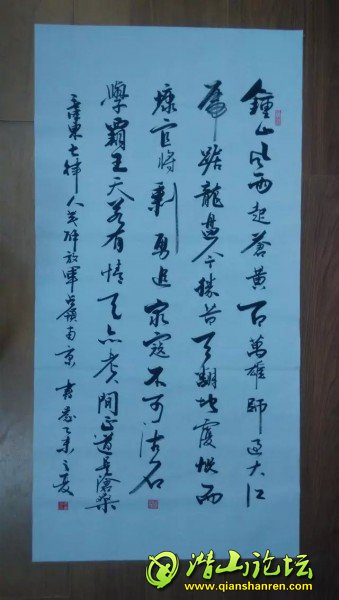 鍾山风雨起蒼黃百萬雄師过大江
虎踞龍盘今勝昔天翻地覆慨而
慷宜將剩勇追窮寇不可沽名
學霸王天若有情天亦老人间正道是滄桑
毛澤東七律人民解放軍占領南京 乙未之夏
潜山论坛
www.qianshanren.com